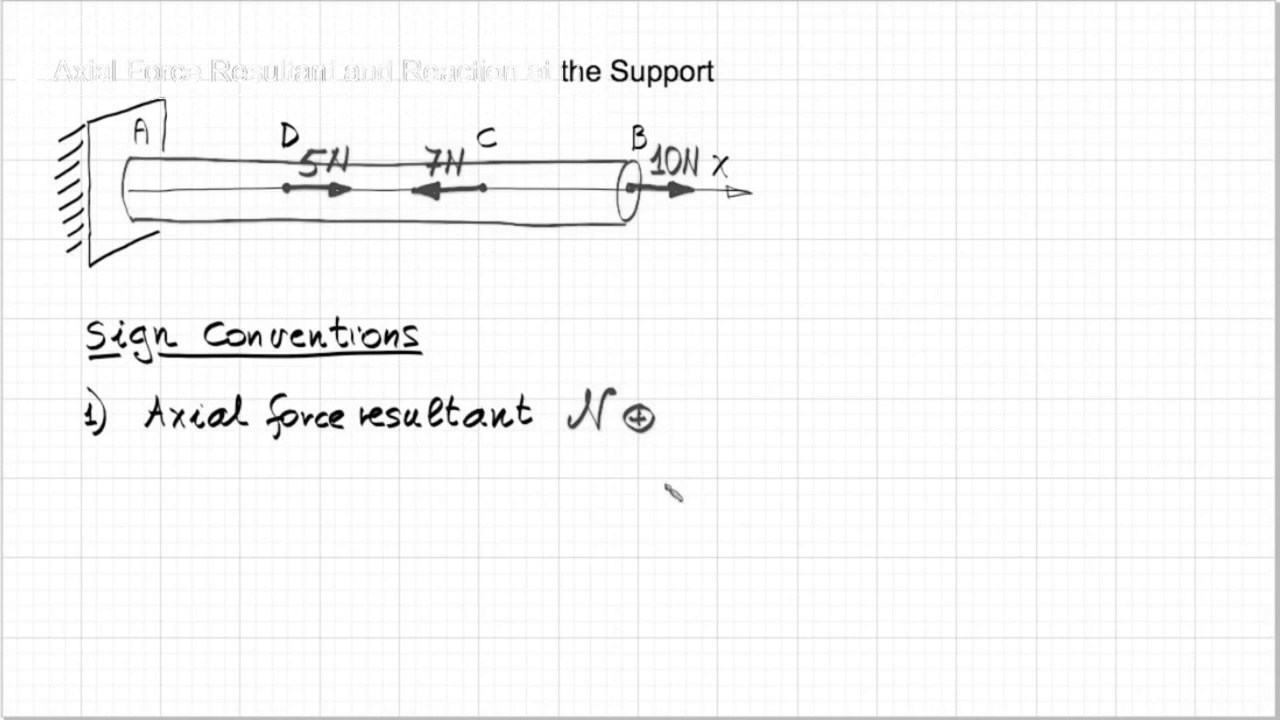 Axial Force Resultant and Reaction at the Support
A D C B
5N 7N 10N x
Sign Conventions
1) Axial force resultant N ⊕